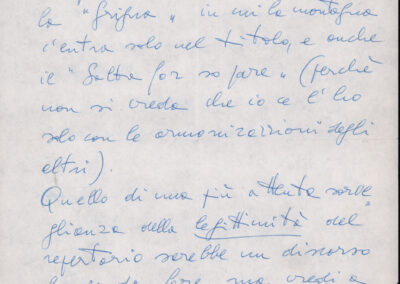 la "Grigna" in cui la montagna
c'entra solo nel titolo, e anche
il "Salta for so pare" (perchè
non si creda che io ce l'ho
solo con le armonizzazioni degli
altri).
Quello di una più attenta sorve=
glianza della legittimità del
repertorio sarebbe un discorso
da fare, ma credi a